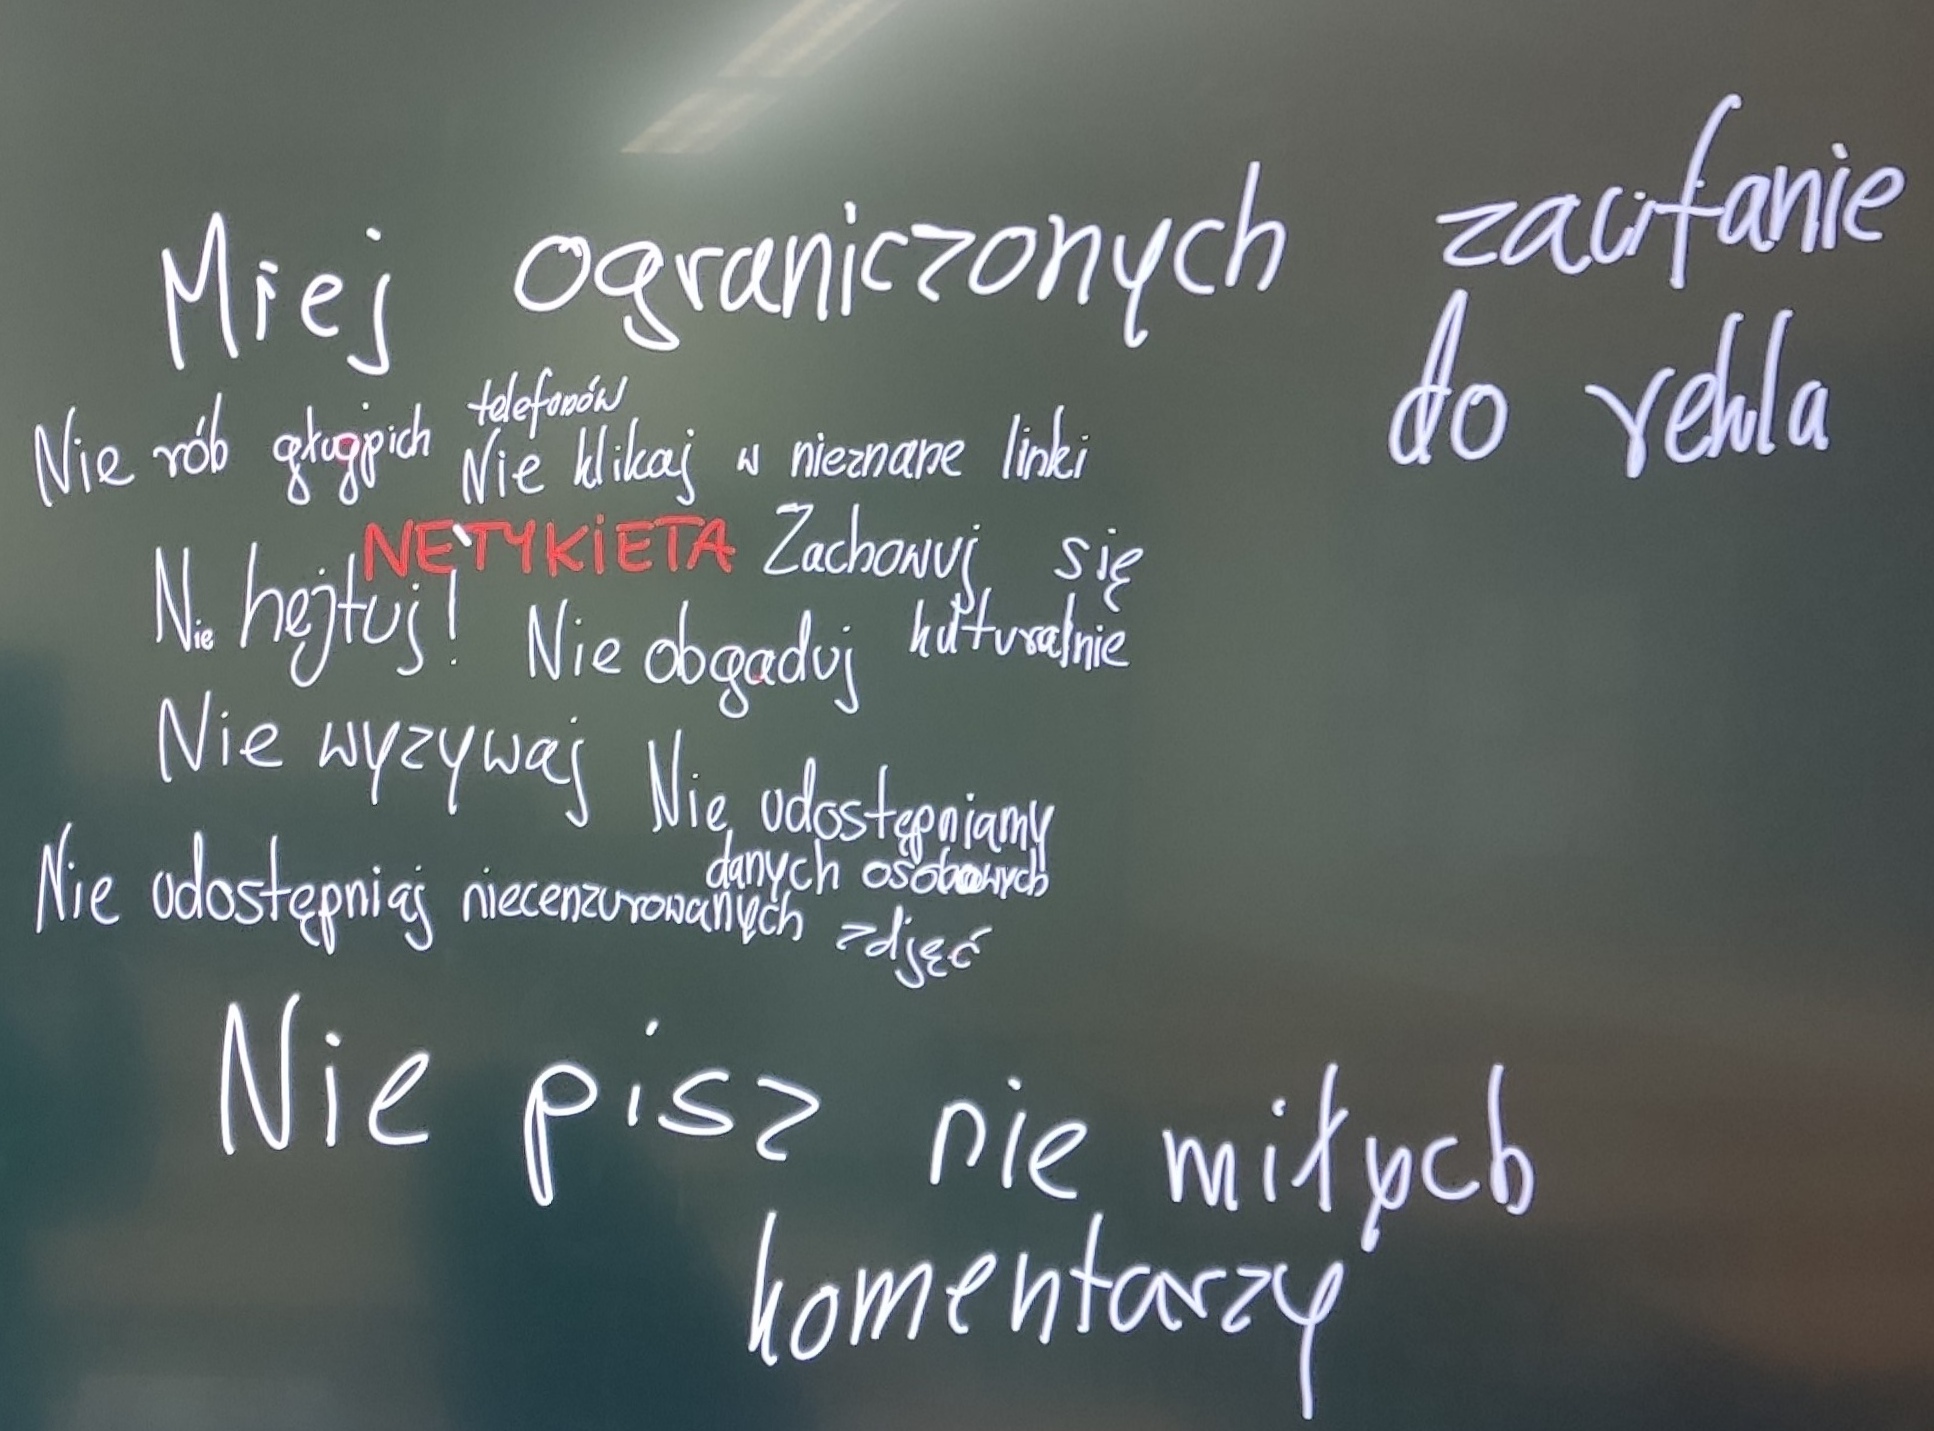 Miej ograniczonych zaufanie
do rekla
Nie rób głupich telefonów
Nie klikaj w nieznane linki
NETYKIETA
Zachowuj się
kulturalnie
Nie hejtuj!
Nie obgaduj
Nie wyzywaj
Nie udostępniamy
danych osobowych
Nie udostępniaj niecenzurowanych zdjęć
Nie pisz nie miłych
komentarzy